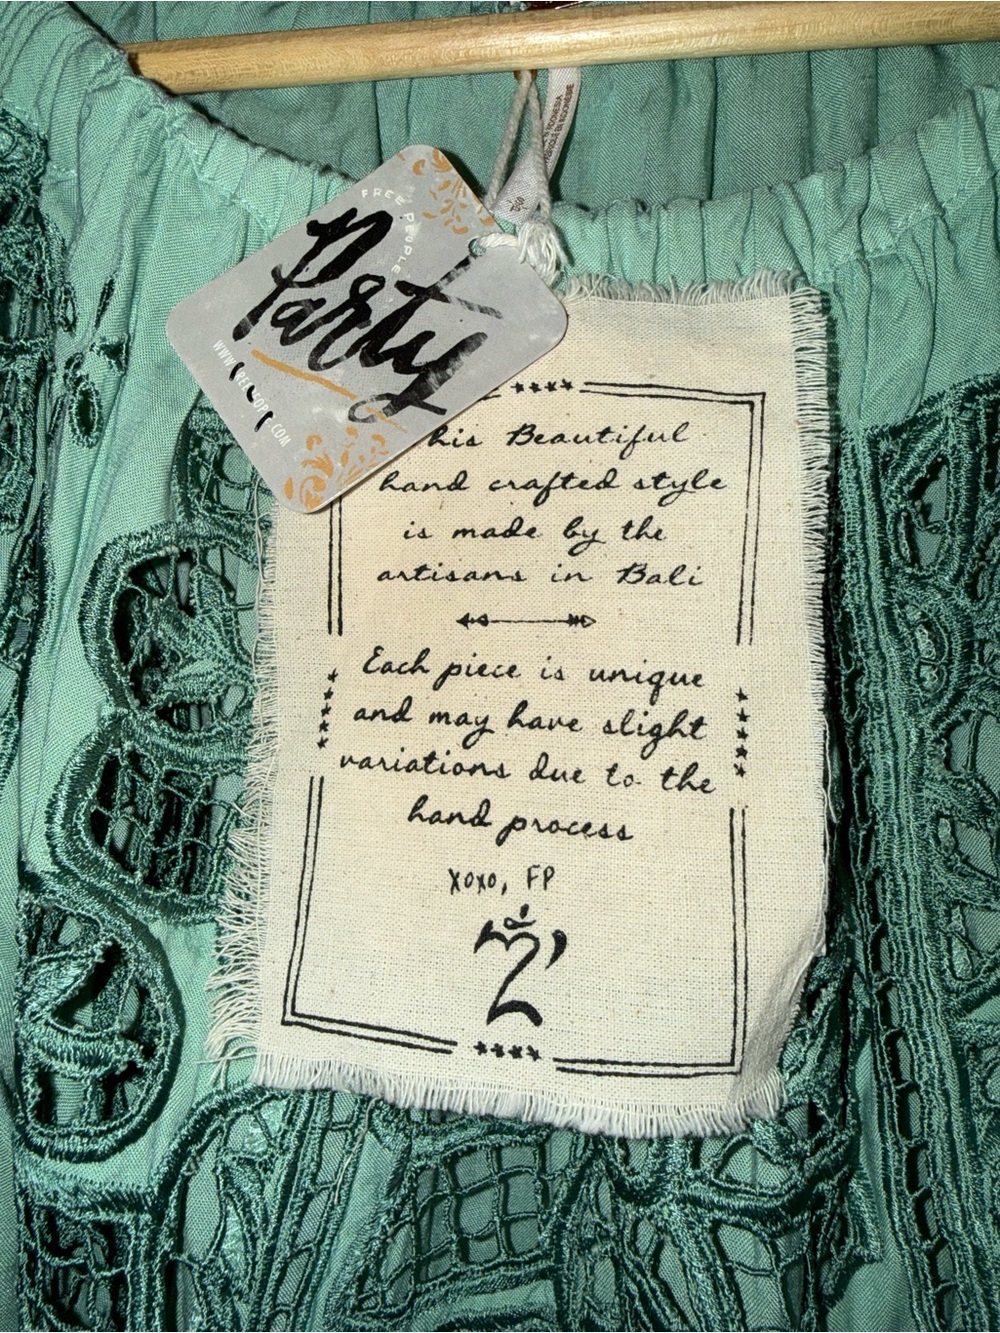 FREE PEOPLE
Party
his Beautiful
hand crafted style
is made by the
artisans in Bali
Each piece is unique
and may have slight
variations due to the
hand process
xoxo, FP